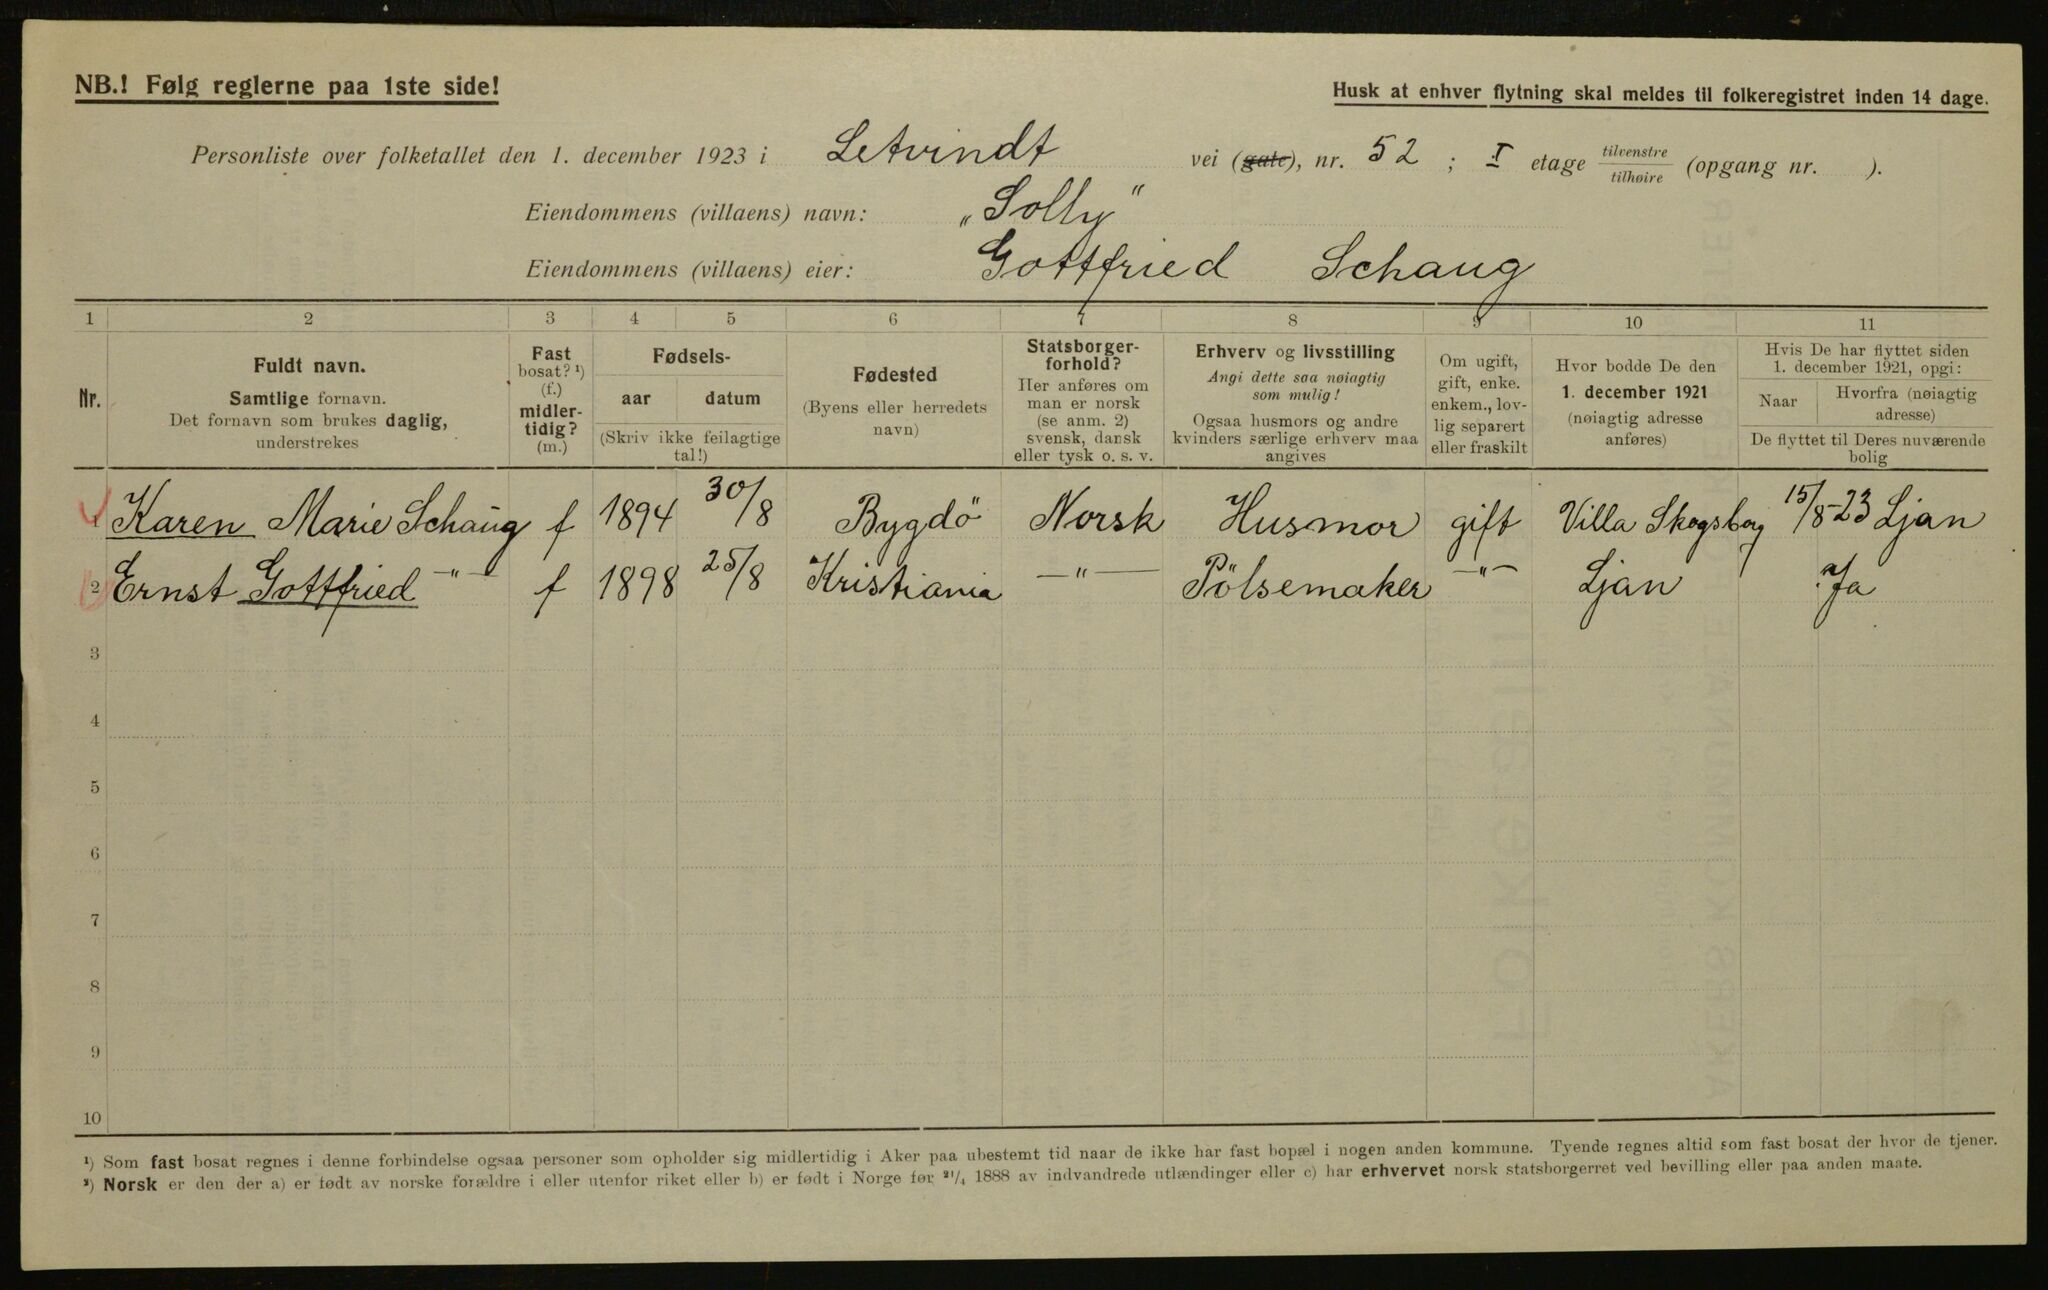 NB.! Følg reglerne paa 1ste side!
Husk at enhver flytning skal meldes til folkeregistret inden 14 dage.
Personliste over folketallet den 1. december 1923 i Letvindt vei (gate), nr. 52 ; I etage tilvenstre / tilhøire (opgang nr. ).
Eiendommens (villaens) navn: „Solly"
Eiendommens (villaens) eier: Gottfried Schaug
1 2 3 4 5 6 7 8 9 10 11
Nr.
Fuldt navn.
Samtlige fornavn.
Det fornavn som brukes daglig,
understrekes
Fast
bosat? ¹)
(f.)
midler-
tidig?
(m.)
Fødsels-
aar datum
(Skriv ikke feilagtige
tal!)
Fødested
(Byens eller herredets
navn)
Statsborger-
forhold?
Her anføres om
man er norsk
(se anm. 2)
svensk, dansk
eller tysk o. s. v.
Erhverv og livsstilling
Angi dette saa nøiagtig
som mulig!
Ogsaa husmors og andre
kvinders særlige erhverv maa
angives
Om ugift,
gift, enke.
enkem., lov-
lig separert
eller fraskilt
Hvor bodde De den
1. december 1921
(nøiagtig adresse
anføres)
Hvis De har flyttet siden
1. december 1921, opgi:
Naar
Hvorfra (nøiagtig
adresse)
De flyttet til Deres nuværende
bolig
1 Karen Marie Schaug f 1894 30/8 Bygdö Norsk Husmor gift Villa Skogsborg 15/8-23 Ljan
2 Ernst Gottfried —"— f 1898 25/8 Kristiania —"— Pölsemaker —"— Ljan Ja
3
4
5
6
7
8
9
10
¹) Som fast bosat regnes i denne forbindelse ogsaa personer som opholder sig midlertidig i Aker paa ubestemt tid naar de ikke har fast bopæl i nogen anden kommune. Tyende regnes altid som fast bosat der hvor de tjener.
²) Norsk er den der a) er født av norske forældre i eller utenfor riket eller b) er født i Norge før ²¹/₄ 1888 av indvandrede utlændinger eller c) har erhvervet norsk statsborgerret ved bevilling eller paa anden maate.